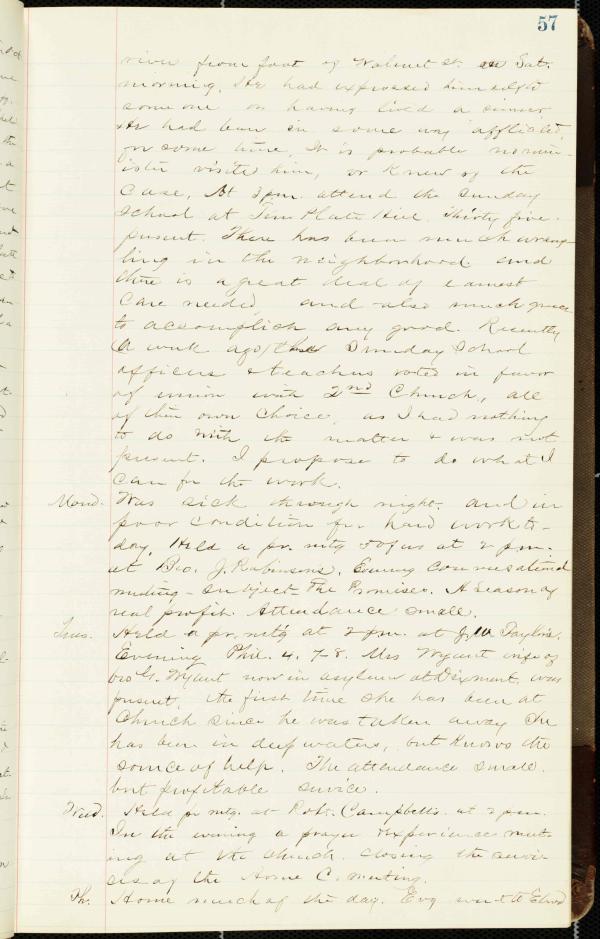 57
river from foot of Walnut St. on Sat.
morning. He had expressed himself to
some one on having lived a sinner.
He had been in some way afflicted
for some time. It is probable no min-
ister visited him, or knew of the
case. At 3 pm. attend the Sunday
School at Tin Plate Hill. Thirty five
present. There has been much wrang-
ling in the neighborhood and
there is a great deal of earnest
care needed, and also much grace
to accomplish any good. Recently
a week ago, the Sunday School
officers & teachers voted in favor
of union with 2nd Church, all
of their own choice, as I had nothing
to do with the matter & was not
present. I propose to do what I
can for the work.
Mond. Was sick through night, and in
poor condition for hard work to-
day. Held a pr. mtg of us at 2 pm.
at Bro. J. Robinsons. Evening attend
meeting - Subject - The Promises. A Season of
real profit. Attendance small.
Tues. Held a pr. mt'g at 2 pm. at J. W. Taylors.
Evening Phil. 4. 7-8. Mrs Wyant wife of
bro G. Wyant now in asylum at Dixmont, was
present, the first time she has been at
Church since he was taken away She
has been in deep waters, but knows the
source of help. The attendance small.
but profitable service.
Wed. Held pr mtg. at Robt. Campbells at 2 pm.
In the evening a prayer & experience meet-
ing at the church closing the servi-
ces of the Home C. meeting.
Th. Home much of the day. Evg went to